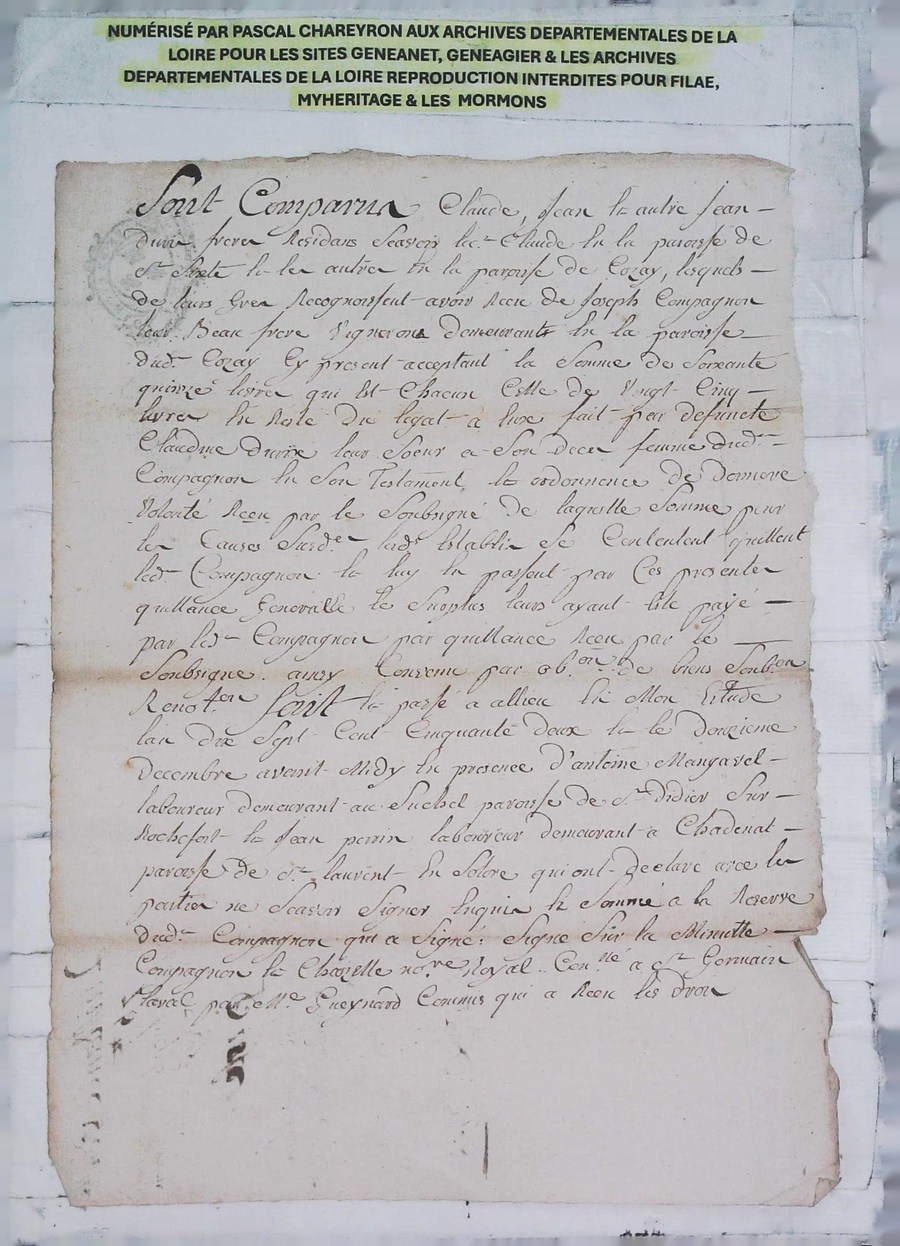 NUMÉRISÉ PAR PASCAL CHAREYRON AUX ARCHIVES DEPARTEMENTALES DE LA
LOIRE POUR LES SITES GENEANET, GENEAGIER & LES ARCHIVES
DEPARTEMENTALES DE LA LOIRE REPRODUCTION INTERDITES POUR FILAE,
MYHERITAGE & LES MORMONS
Sont Comparus Claude, Jean et autre Jean
frere Residans Scavoir led.t Claude en la paroisse de
S.t Sixte et les autres en la paroisse de Cozay, lesquels
de leurs Gres Recognoissent avoir Receu de Joseph Compagnon
leur Beau frere Vigneron demeurant en la paroisse
dud.t Cozay Cy present acceptant la Somme de Soixante
quinze livres qui Est Chacun Celle de Vingt Cinq
livres du legat a eux fait par defuncte
Claudine leur Soeur a Son deces femme dud.t
Compagnon en Son Testament et ordonnence de derniere
Volonté Receu par le Soubsigné de laquelle Somme pour
les Causes Susd.es Establis Se Contentent quittent
led.t Compagnon et luy en passent par Ces presentes
quittance Generalle le Surplus leurs ayant Eté payé
par led.t Compagnon par quittance Receu par le
Soubsigné. ainsy Convenu par ob.on de biens Soub.on
Renot.on Fait et passé a allieu en Mon Etude
lan dix Sept Cent Cinquante deux et le Douzieme
Decembre avant Midy en presence d'antoine Mangavel
laboureur demeurant au Suchel paroisse de S.t Didier Sur
Rochefort et Jean perrin laboureur demeurant a Chadenat
paroisse de S.t laurent En Solore qui ont declaré avec les
parties ne Scavoir Signer Enquis et Sommé a la Reserve
dud.t Compagnon qui a Signé: Signe Sur la Minutte
Compagnon et Chazelle no.re Royal. Con.llé a S.t Germain
laval par M.e Gueynard Commis qui a Receu les droits